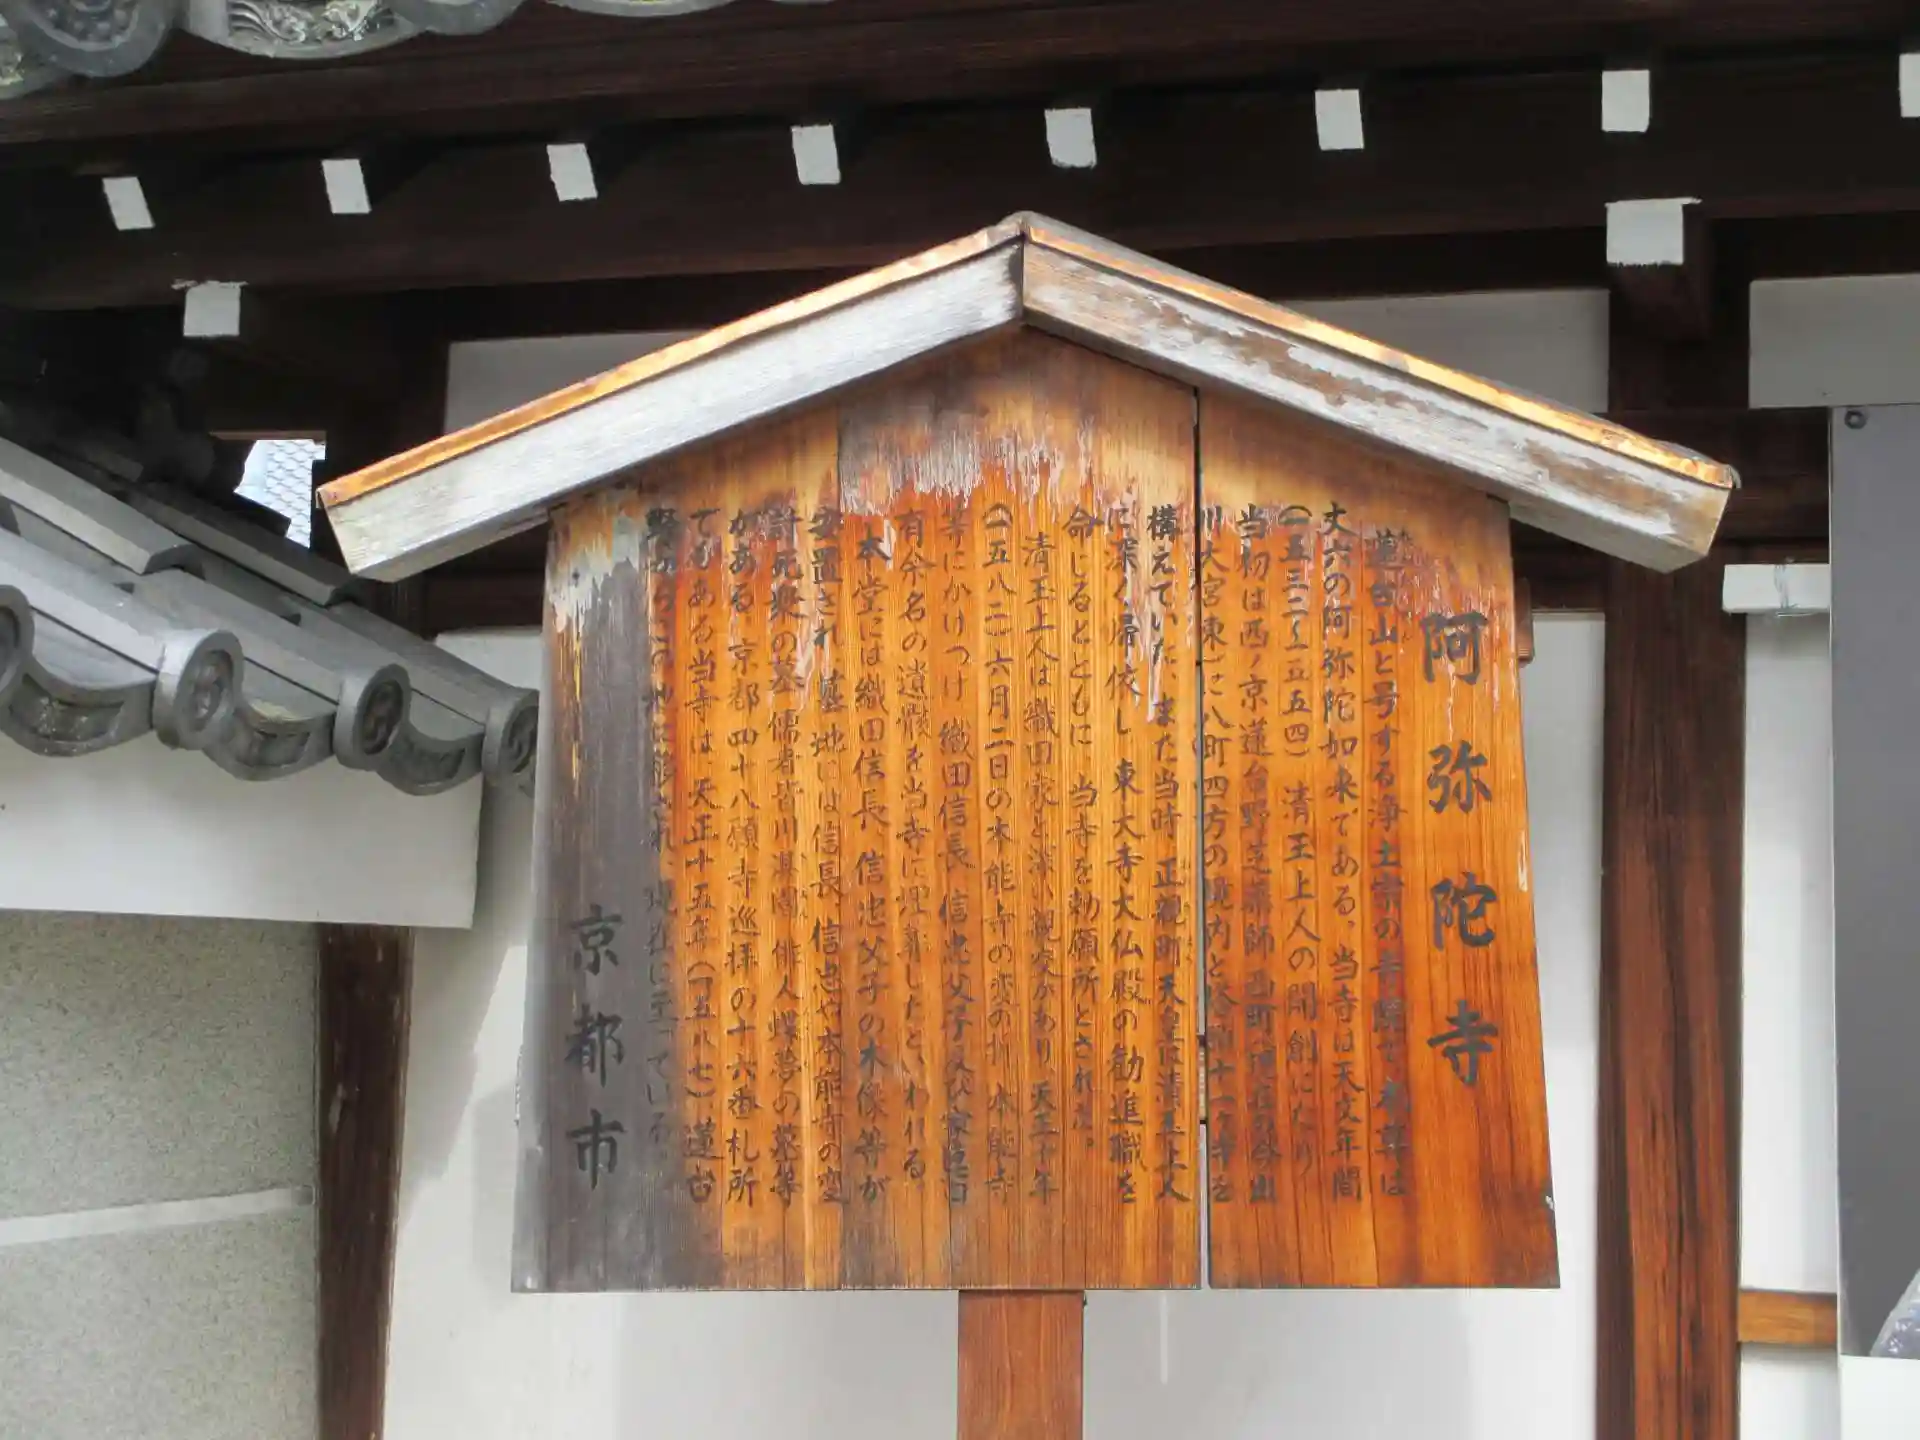 阿弥陀寺
蓮台山と号する浄土宗の寺院で、本尊は
丈六の阿弥陀如来である。当寺は天文年間
(一五三二〜五五四)清玉上人の開創にたり
当初は西ノ京蓮台野芝薬師西町(現在の今出
川大宮東)に八町四方の境内と塔頭十一ヶ寺を
構えていた。また当時、正親町天皇は清玉上人
に深く帰依し、東大寺大仏殿の勧進職を
命じるとともに、当寺を勅願所とされた。
清玉上人は織田家と深い親交があり、天正十年
(一五八二)六月二日の本能寺の変の折、本能寺
等にかけつけ、織田信長、信忠父子及び家臣百
有余名の遺骸を当寺に埋葬したといわれる。
本堂には織田信長、信忠父子の木像等が
安置され、墓地には信長、信忠や本能寺の変
討死衆の墓、儒者皆川淇園、俳人蝶夢の墓等
がある。京都四十八願寺巡拝の十六番札所
でもある当寺は、天正十五年(一五八七)、蓮台
野からこの地に移され、現在に至っている。
京都市